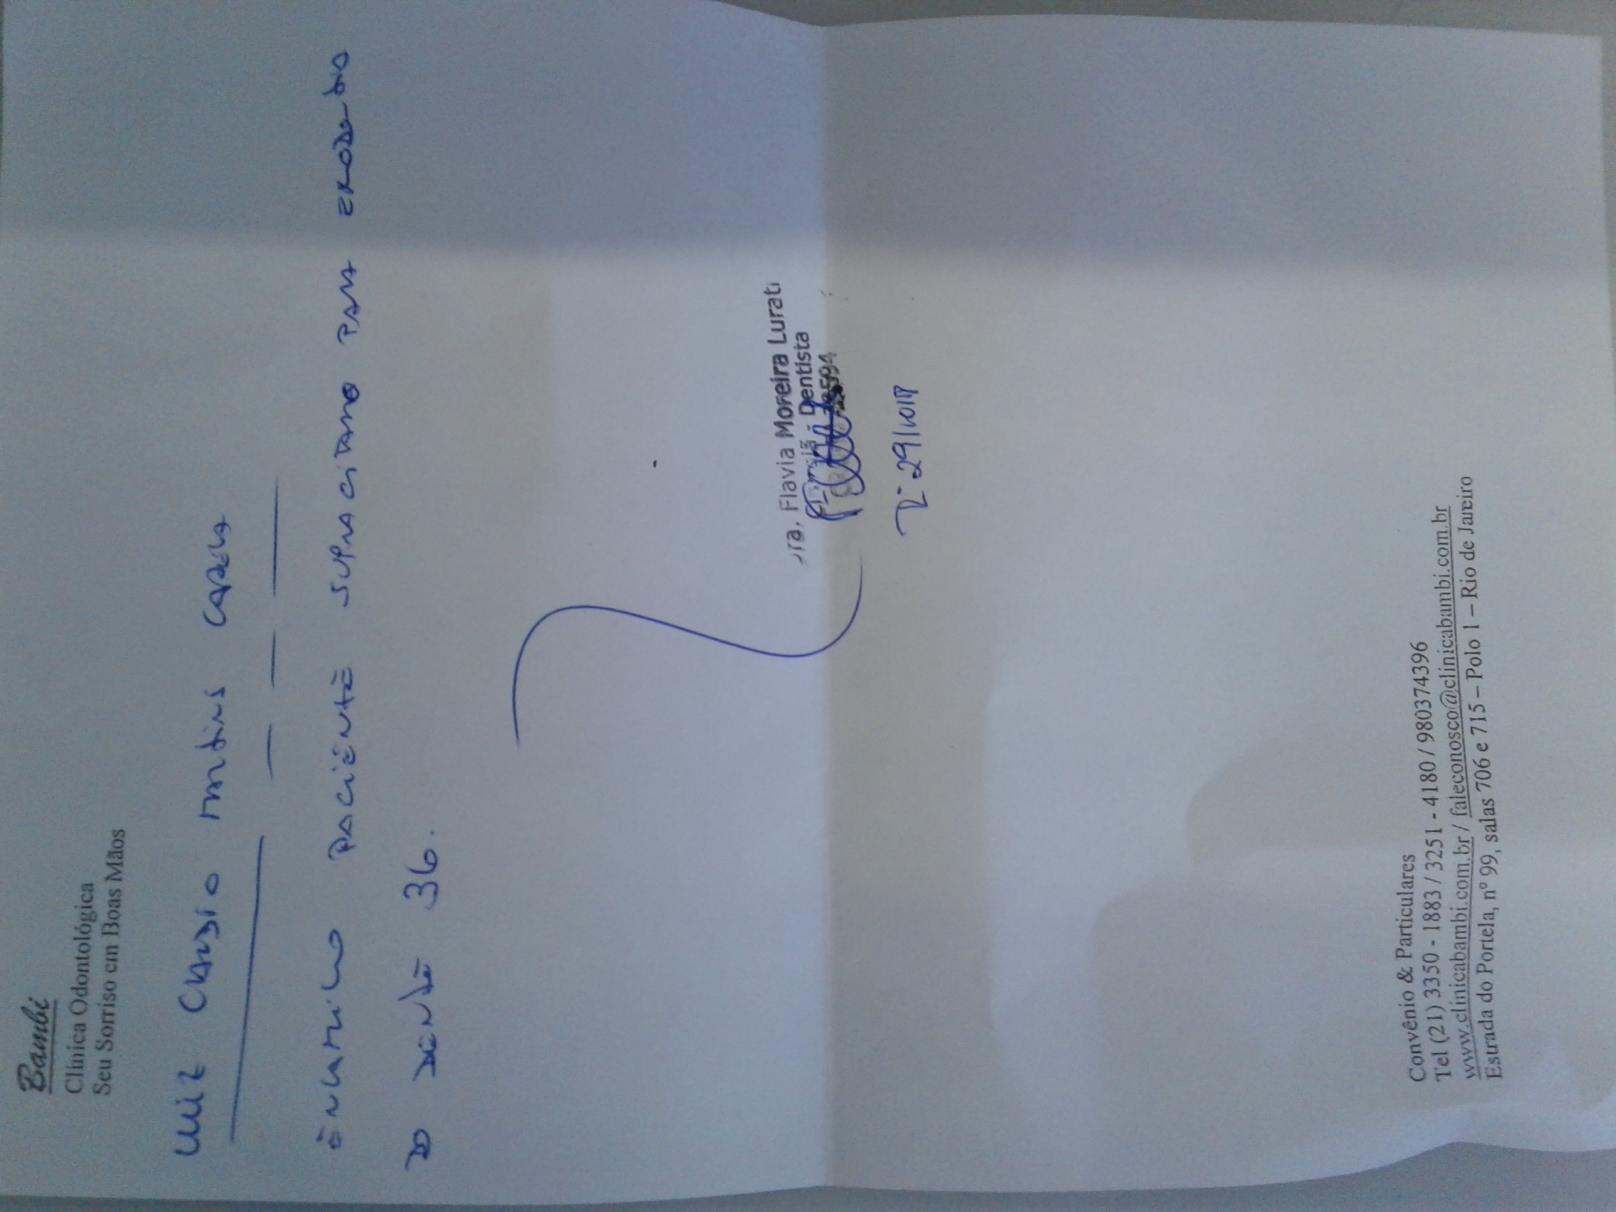 Bambi
Clínica Odontológica
Seu Sorriso em Boas Mãos
Luiz Claudio Martins
Encaminho paciente supracitado para exodontia
do dente 36.
Flavia Moreira Lurati
Dentista
Convênio & Particulares
Tel (21) 3350 - 1883 / 3251 - 4180 / 980374396
www.clinicabambi.com.br / faleconosco@clinicabambi.com.br
Estrada do Portela, nº 99, salas 706 e 715 – Polo 1 – Rio de Janeiro